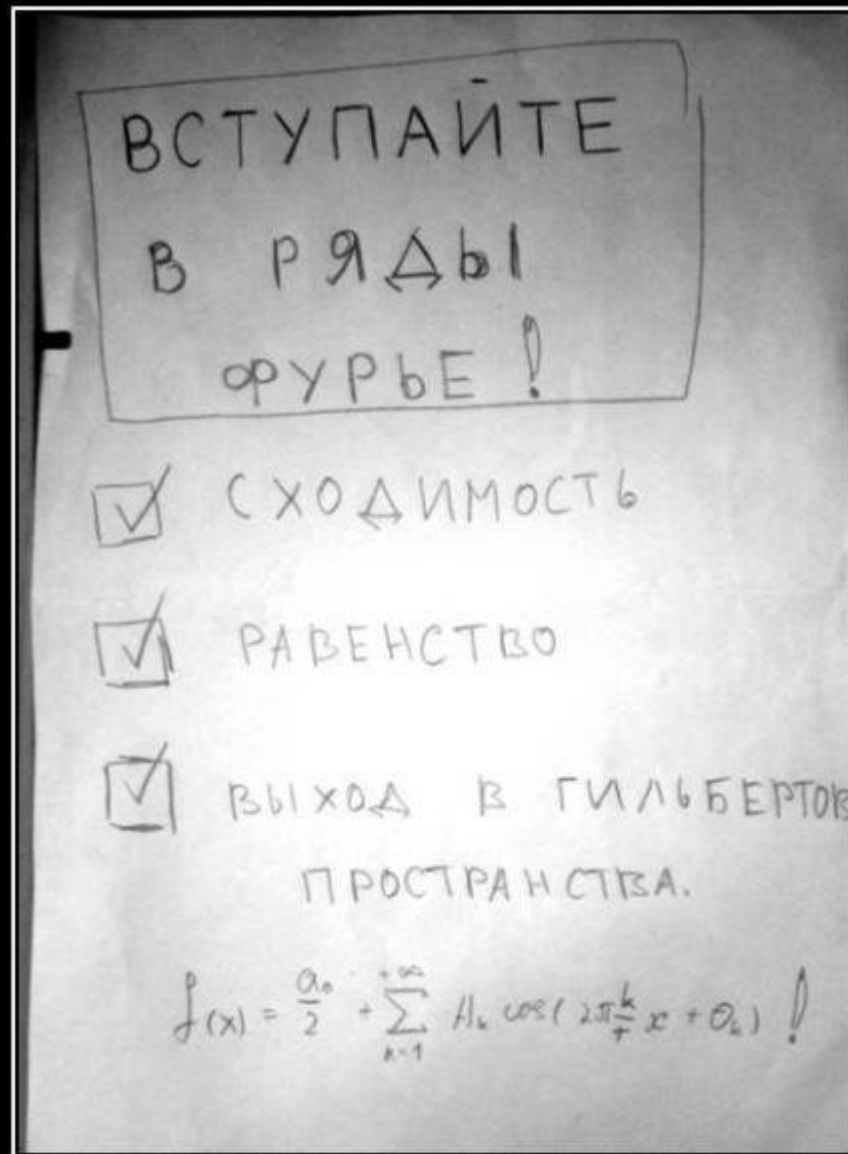 ВСТУПАЙТЕ
В РЯДЫ
ФУРЬЕ!
СХОДИМОСТЬ
РАВЕНСТВО
ВЫХОД В ГИЛЬБЕРТОВ
ПРОСТРАНСТВА.
f(x) = a₀/2 + ∑_{k=1}^{+∞} A_k cos(2π k/T x + θ_k)!